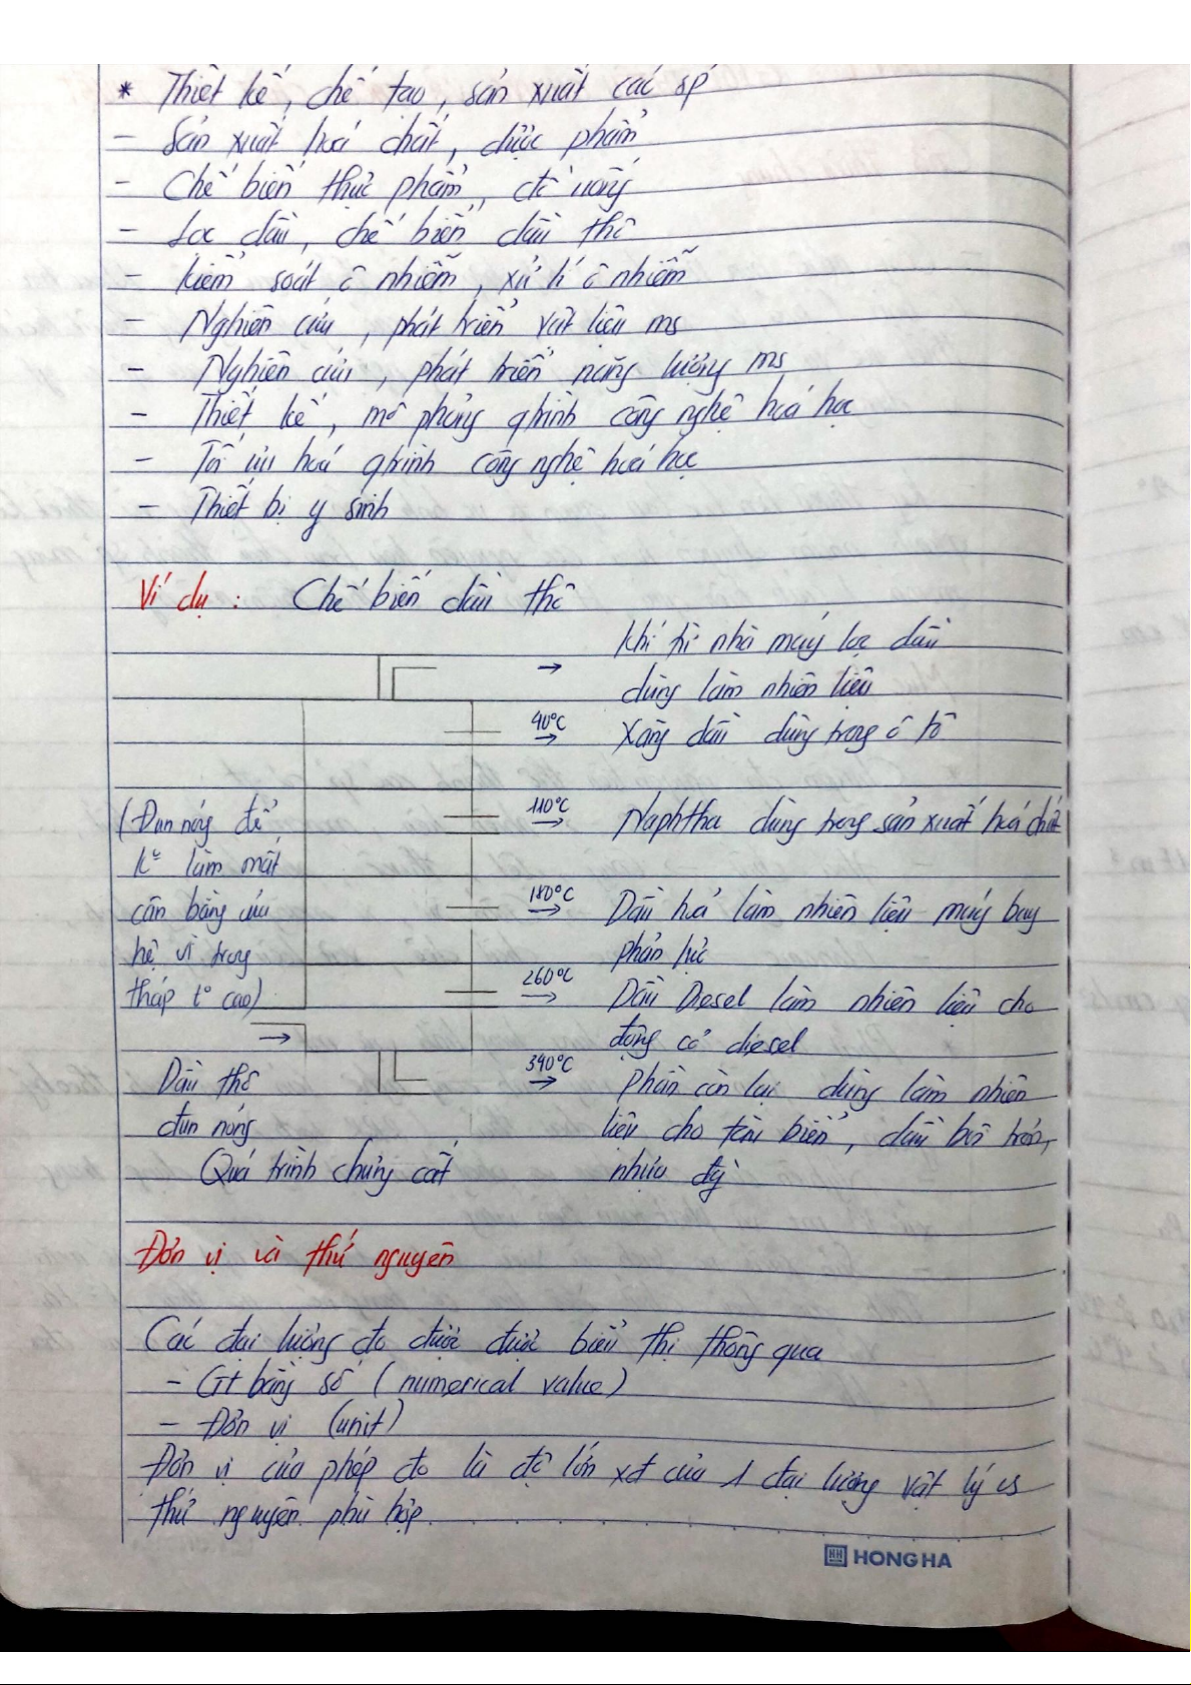 * Thiết kế, chế tạo, sản xuất các sp
- Sản xuất hoá chất, dược phẩm
- Chế biến thực phẩm, đồ uống
- Lọc dầu, chế biến dầu thô
- Kiểm soát ô nhiễm, xử lí ô nhiễm
- Nghiên cứu, phát triển vật liệu ms
- Nghiên cứu, phát triển năng lượng ms
- Thiết kế, mô phỏng qtrình công nghệ hoá học
- Tối ưu hoá qtrình công nghệ hoá học
- Thiết bị y sinh
Ví dụ: Chế biến dầu thô
→ Khí từ nhà máy lọc dầu
dùng làm nhiên liệu
40°C → Xăng dầu dùng trong ô tô
110°C → Naphtha dùng trong sản xuất hoá chất
180°C → Dầu hoả làm nhiên liệu máy bay
phản lực
260°C → Dầu Diesel làm nhiên liệu cho
động cơ diesel
340°C → Phần còn lại dùng làm nhiên
liệu cho tàu biển, dầu bôi trơn,
nhựa đg
(Đun nóng để
làm mất
cân bằng của
hệ vì trong
tháp t° cao)
→
Dầu thô
đun nóng
Quá trình chưng cất
Đơn vị và thứ nguyên
Các đại lượng đo được được biểu thị thông qua
- Gt bằng số (numerical value)
- Đơn vị (unit)
Đơn vị của phép đo là độ lớn xđ của 1 đại lượng vật lý cs
thứ nguyên phù hợp.
HH HONG HA